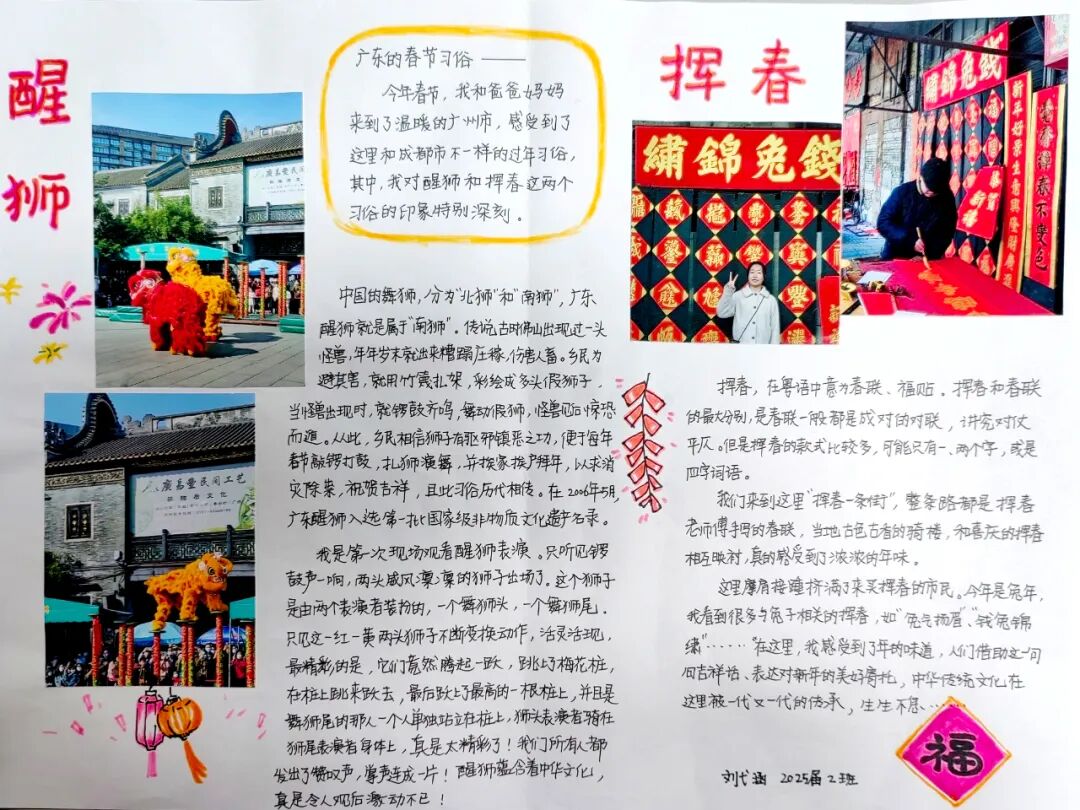 醒狮
广东的春节习俗——
今年春节，我和爸爸妈妈
来到了温暖的广州市，感受到了
这里和成都市不一样的过年习俗，
其中，我对醒狮和挥春这两个
习俗的印象特别深刻。
中国的舞狮，分为“北狮”和“南狮”，广东
醒狮就是属于“南狮”。传说古时佛山出现过一头
怪兽，年年岁末就出来糟蹋庄稼，伤害人畜。乡民为
避其害，就用竹篾扎架，彩绘成多头假狮子，
当怪兽出现时，就锣鼓齐鸣，舞动假狮，怪兽见后惊恐
而遁。从此，乡民相信狮子有驱邪镇恶之功，便于每年
春节敲锣打鼓，扎狮演舞，并挨家挨户拜年，以求消
灾除祟，祝贺吉祥，且此习俗历代相传。在2006年5月，
广东醒狮入选第一批国家级非物质文化遗产名录。
我是第一次现场观看醒狮表演。只听见锣
鼓声一响，两头威风凛凛的狮子出场了。这个狮子
是由两个表演者装扮的，一个舞狮头，一个舞狮尾。
只见这一红一黄两头狮子不断变换动作，活灵活现，
最精彩的是，它们竟然腾起一跃，跳上了梅花桩，
在桩上跳来跃去，最后跃上了最高的一根桩上，并且是
舞狮尾的那人一个人单独站立在桩上，狮头表演者骑在
狮尾表演者身体上，真是太精彩了！我们所有人都
发出了赞叹声，掌声连成一片！醒狮蕴含着中华文化，
真是令人观后激动不已！
挥春
繡錦兔錢
繡錦兔錢
新年好景生意興隆財廣
廣昌豐民间工艺
廣昌豐民间工艺
挥春，在粤语中意为春联、福贴。挥春和春联
的最大分别，是春联一般都是成对的对联，讲究对仗
平仄。但是挥春的款式比较多，可能只有一、两个字，或是
四字词语。
我们来到这里“挥春一条街”，整条路都是挥春
老师傅手写的春联，当地古色古香的骑楼，和喜庆的挥春
相互映衬，真的感受到了浓浓的年味。
这里摩肩接踵挤满了来买挥春的市民。今年是兔年，
我看到很多与兔子相关的挥春，如“兔气扬眉”、“钱兔锦
绣”……“在这里，我感受到了年的味道，人们借助这一句
句吉祥话、表达对新年的美好寄托，中华传统文化在
这里被一代又一代的传承，生生不息……
福
刘弋涵 2025届2班